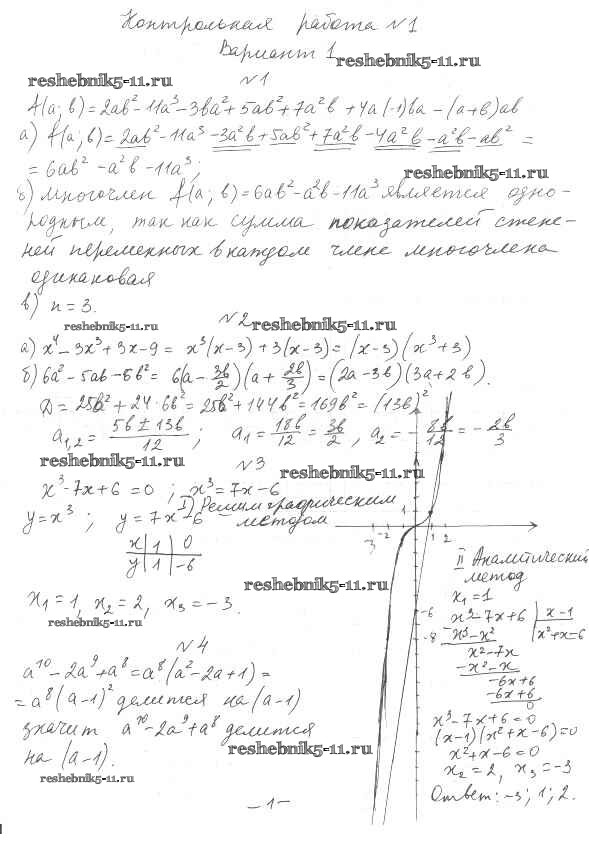 Контрольная работа №1
Вариант 1
reshebnik5-11.ru
reshebnik5-11.ru
№1
f(a; b) = 2ab² - 11a³ - 3ba² + 5ab² + 7a²b + 4a(-1)ba - (a+b)ab
а) f(a; b) = 2ab² - 11a³ - 3a²b + 5ab² + 7a²b - 4a²b - a²b - ab² =
= 6ab² - a²b - 11a³;
reshebnik5-11.ru
б) многочлен f(a; b) = 6ab² - a²b - 11a³ является одно-
родным, так как сумма показателей степе-
ней переменных в каждом члене многочлена
одинаковая
в) n = 3.
reshebnik5-11.ru
№2
reshebnik5-11.ru
а) x⁴ - 3x³ + 3x - 9 = x³(x-3) + 3(x-3) = (x-3)(x³+3)
б) 6a² - 5ab - 6b² = 6(a - 3b/2)(a + 2b/3) = (2a-3b)(3a+2b).
D = 25b² + 24·6b² = 25b² + 144b² = 169b² = (13b)²
a₁,₂ = (5b ± 13b)/12 ; a₁ = 18b/12 = 3b/2, a₂ = -8b/12 = -2b/3
reshebnik5-11.ru
№3
reshebnik5-11.ru
x³ - 7x + 6 = 0 ; x³ = 7x - 6
I) Решим графическим
методом
y = x³ ; y = 7x - 6
x | 1 | 0
y | 1 | -6
x₁ = 1, x₂ = 2, x₃ = -3.
reshebnik5-11.ru
reshebnik5-11.ru
1
-3 -2
1 2
-6
-8
II Аналитический
метод
x₁ = 1
x³ - 7x + 6 | x - 1
x³ - x² | x² + x - 6
x² - 7x
- x² - x
-6x + 6
-6x + 6
0
x³ - 7x + 6 = 0
(x-1)(x² + x - 6) = 0
x² + x - 6 = 0
x₂ = 2, x₃ = -3
Ответ: -3; 1; 2.
№4
a¹⁰ - 2a⁹ + a⁸ = a⁸(a² - 2a + 1) =
= a⁸(a-1)² делится на (a-1)
значит a¹⁰ - 2a⁹ + a⁸ делится
на (a-1).
reshebnik5-11.ru
reshebnik5-11.ru
-1-